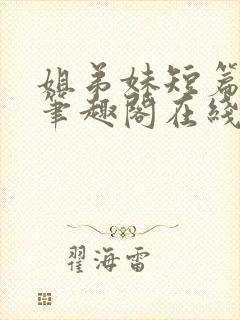 姐弟妹短篇
笔趣阁在线
翟海雷